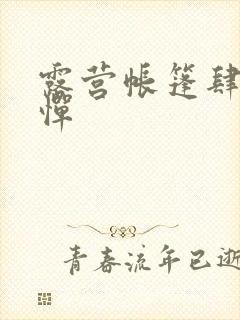 露营帐篷肆
惮
青春流年已逝